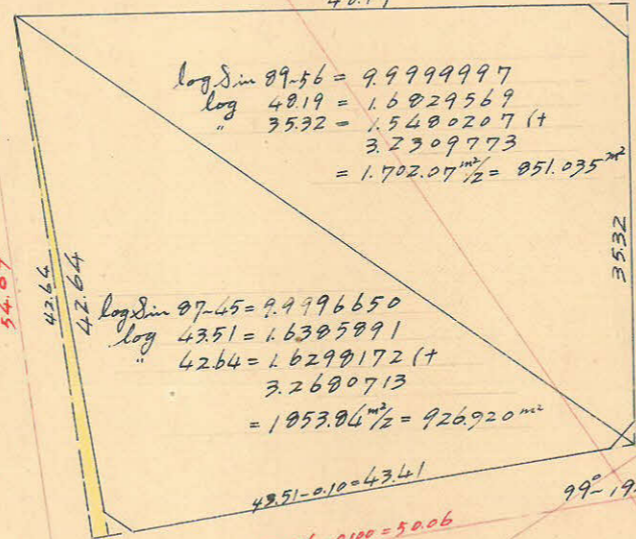 log Sin 89-56 = 9.9999997
log 48.19 = 1.6829569
" 35.32 = 1.5480207 (+
3.2309773
= 1.702.07 m²/2 = 851.035 m²
35.32
42.64
42.64
log Sin 87-45 = 9.9996650
log 43.51 = 1.6385891
" 42.64 = 1.6298172 (+
3.2680713
= 1853.84 m²/2 = 926.920 m²
43.51-0.10=43.41
0.100 = 50.06